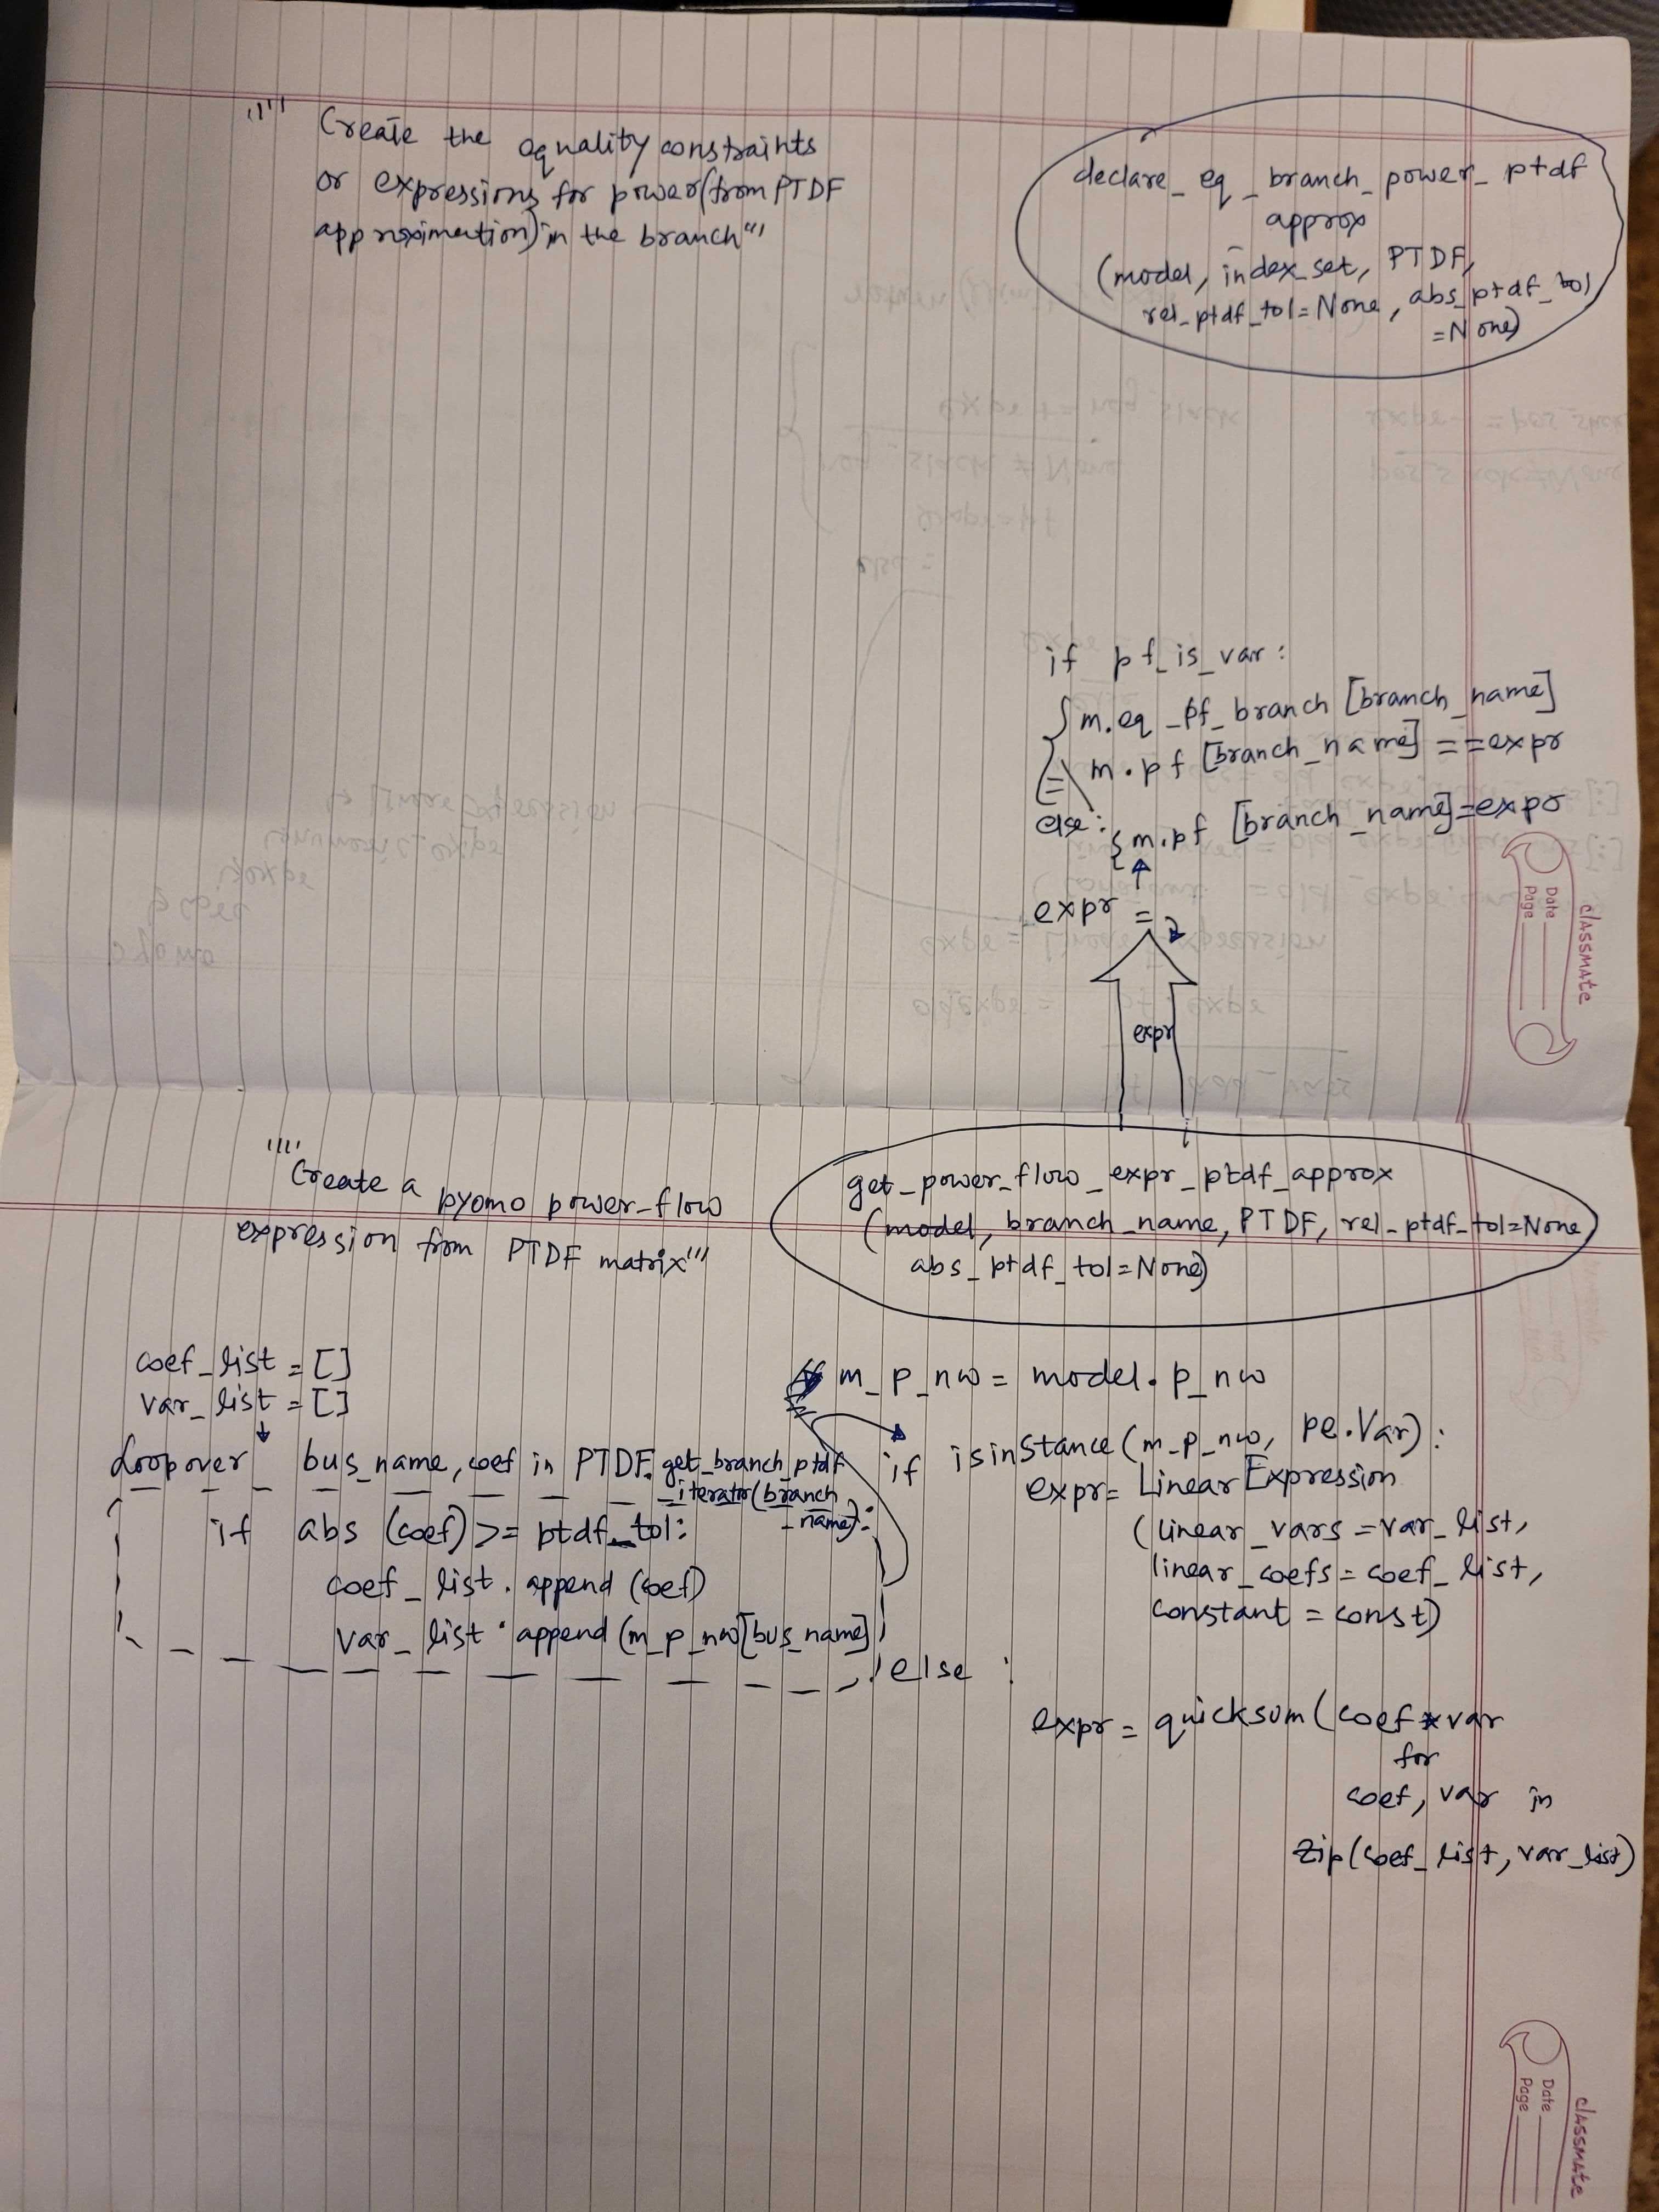 "" Create the equality constraints
or expressions for power(from PTDF
approximation) in the branch"'
declare_eq_branch_power_ptdf
approx
(model, index_set, PTDF,
rel_ptdf_tol=None, abs_ptdf_tol
=None)
if pf_is_var:
m.eq_pf_branch [branch_name]
= m.pf [branch_name] == expr
else:
m.pf [branch_name]=expr
expr =
expr
classmate
Date
Page
"" Create a pyomo power_flow
expression from PTDF matrix"'
get_power_flow_expr_ptdf_approx
(model, branch_name, PTDF, rel_ptdf_tol=None
abs_ptdf_tol=None)
coef_list = []
var_list = []
Loop over bus_name, coef in PTDF.get_branch_ptdf
_iterator(branch
_name):
if abs (coef) >= ptdf_tol:
coef_list.append (coef)
var_list.append (m_p_nw[bus_name]
m_p_nw = model.p_nw
if isinstance (m_p_nw, pe.Var):
expr= Linear Expression
(linear_vars = var_list,
linear_coefs = coef_list,
constant = const)
else :
expr = quicksum (coef * var
for
coef, var in
zip(coef_list, var_list)
classmate
Date
Page